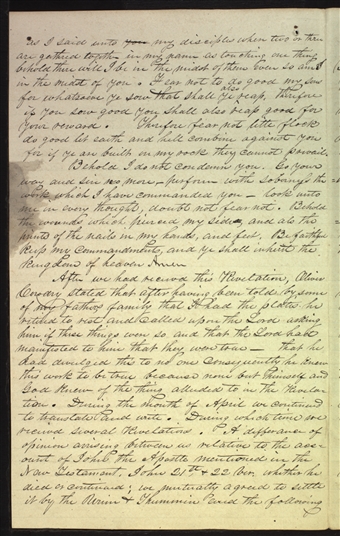 as I said unto you my disciples when two or three
are gathered together in my name as touching one thing
behold there will I be in the midst of them even so am I
in the midst of you. Fear not to do good my sons
for whatsoever ye sow that shall ye also reap, therefore
if you sow good you shall also reap good for
your reward. Therefore fear not little flock
do good let earth and hell combine against you
for if ye are built on my rock they cannot prevail.
Behold I do not condemn you. Go your
way and sin no more, perform with soberness the
work which I have commanded you, look unto
me in every thought, doubt not fear not. Behold
the wounds which pierced my side, and also the
prints of the nails in my hands, and feet, Be faithful
keep my commandments, and ye shall inherit the
kingdom of heaven Amen.
After we had received this Revelation, Oliver
Cowdery stated that after having been told by some
of my Father family that I had the plates, he
retired to rest and called upon the Lord asking
him, if these things were so and that the Lord had
manifested to him that they were true — that he
had divulged this to no one Consequently he knew
this work to be true because none but himself and
God knew of the thing alluded to in the Revela-
tion. During the month of April we continued
to translate and write. During which time we
received several Revelations. A difference of
opinion arising between us relative to the acc-
ount of John the Apostle mentioned in the
New Testament, John 21st & 22 ver. whether he
died or continued; we mutually agreed to settle
it by the Urim & Thummim and the following